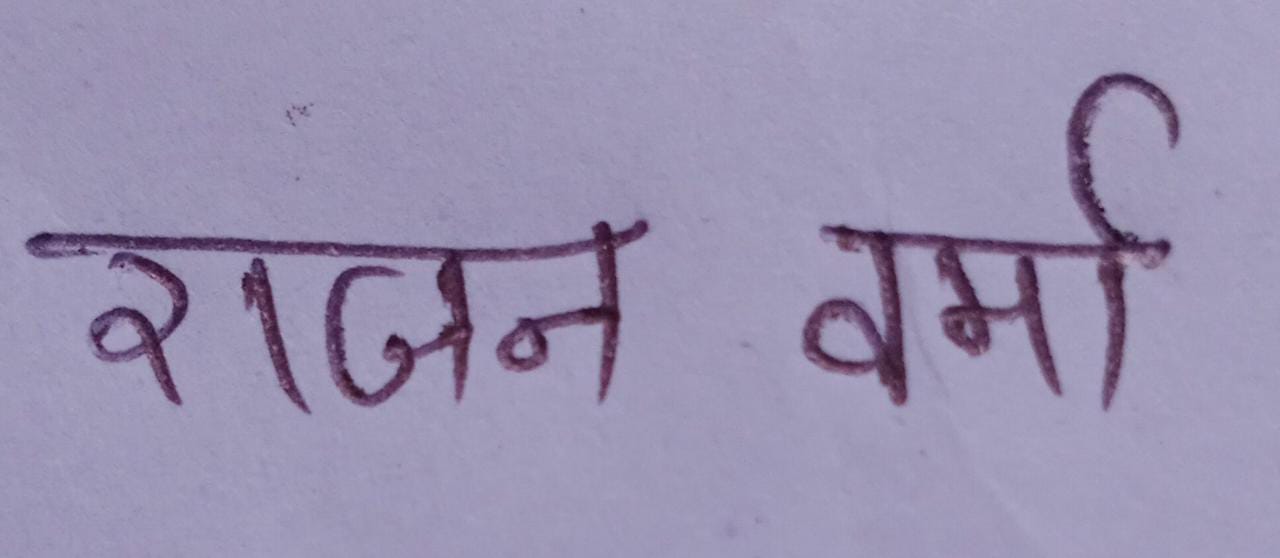 राजन वर्मा